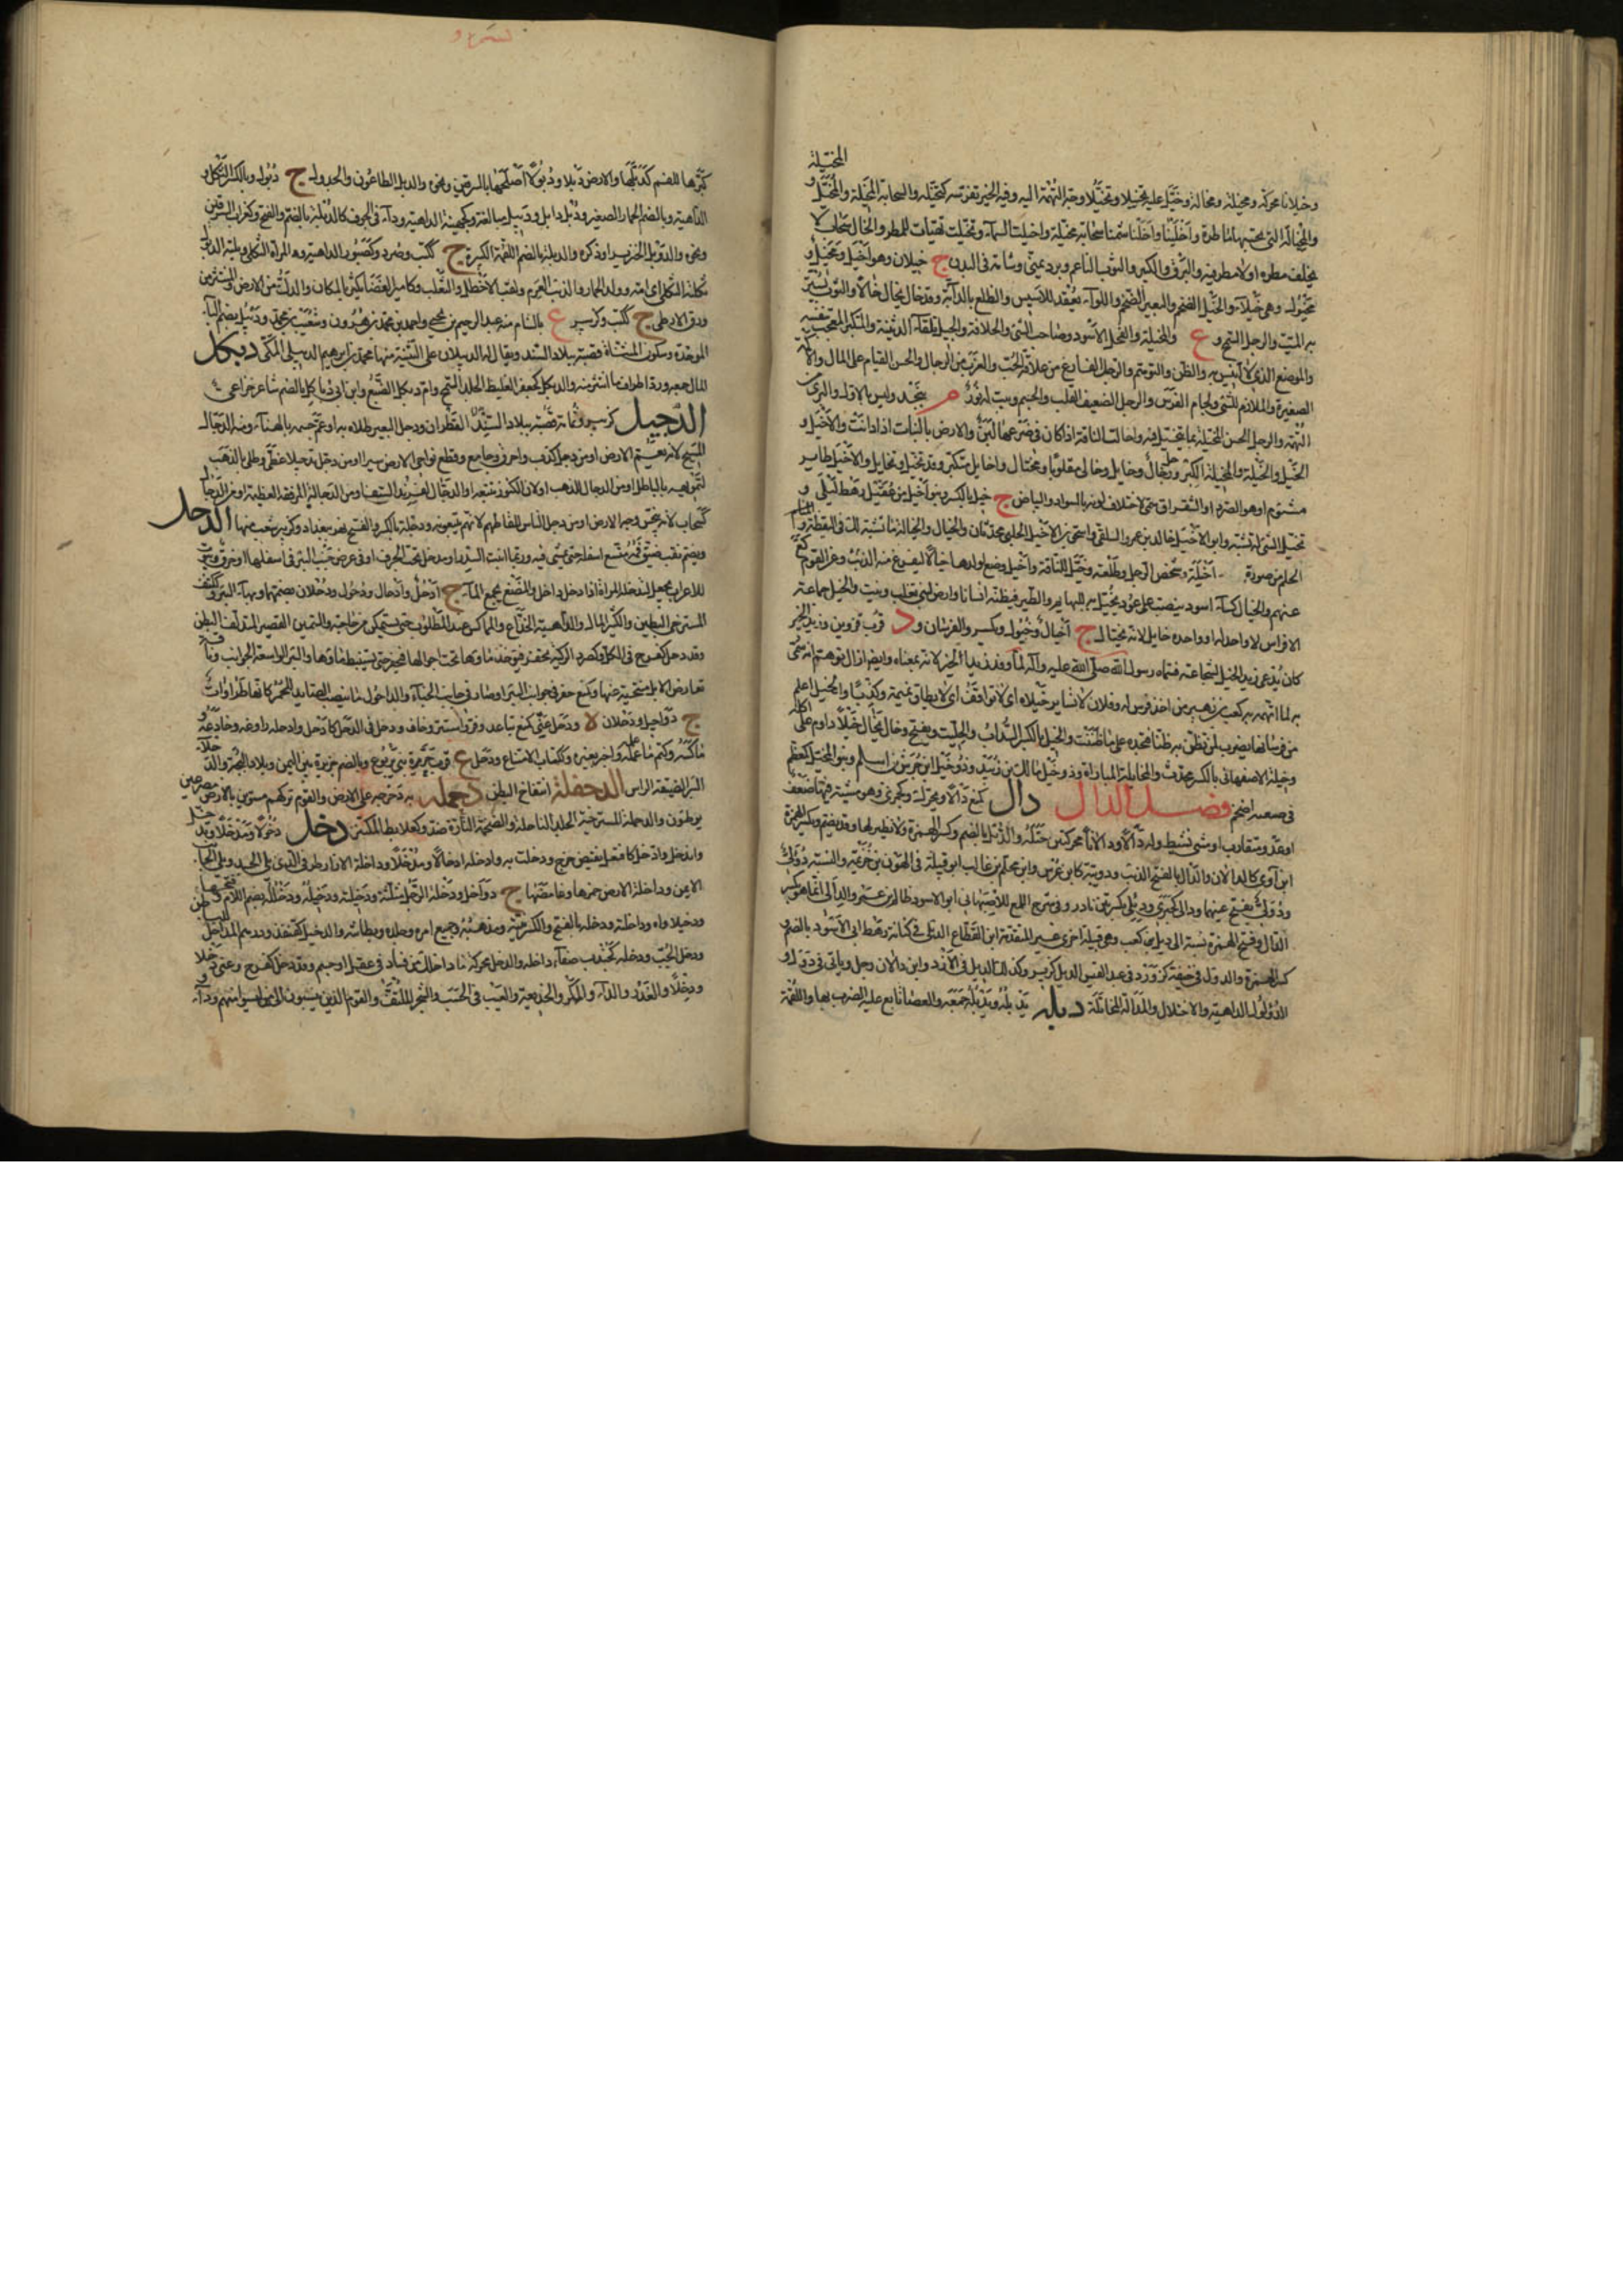 المخيلة
وخيلانا محركة ومخيلة ومخالة وخيل عليه تخييلا وتخيلا وجه التهمة اليه وفيه الخير تفرسه كتخيله والسحابة المخيلة والمخيل و
والمخيالة التي تحسبها ماطرة واخيلنا واخيلنا شمنا سحابة مخيلة واخيلت السماء وتخيلت تهيأت للمطر والخال سحاب لا
يخلف مطره او لا مطر فيه والبرق والكبر والثوب الناعم وبرد يمني وشامة في البدن ج خيلان وهو اخيل ومخيل و
مخيول وهي خيلاء والجبل الضخم والبعير الضخم واللواء يعقد للامير والظلع بالدابة وقد خال يخال خالا والثوب يستر
به الميت والرجل السمح و ع والمخيلة والفحل الاسود وصاحب الشئ والخلافة وجبل تلقاء الدثينة والمتكبر المعجب بنفسه
والموضع الذي لا انيس به والظن والتوهم والرجل الفارغ من علاقة الحب والعزب من الرجال والحسن القيام على المال والاكمة
الصغيرة والملازم للشئ ولجام الفرس والرجل الضعيف القلب والجسم ونبت له نور م بنجد وليس بالاول والبرئ من
التهمة والرجل الحسن المخيلة بما يتخيل فيه واخالت الناقة اذا كان في ضرعها لبن والارض بالنبات اذا ازدانت والاخيل و
الخيل والخيلة والمخيلة الكبر ورجل خال وخايل وخالى مقلوبا ومختال واخايل متكبر وقد تخيل وتخايل والاخيل طاير
مشئوم او هو الصرد او الشقراق سمى لاختلاف لونه بالسواد والبياض ج خيل بالكسر وبنو اخيل بن عقيل رهط ليلى و
تخيل الشئ له تشبه وابو الاخيل خالد بن عمرو السلفي واسحق بن الاخيل الحلبي محدثان والخيال والخيالة ما تشبه لك في اليقظة والمنام
الحلم من صورة اخيلة وشخص الرجل وطلعته وخيل للناقة واخيل وضع لولدها خيالا ليفزع منه الذئب وعن القوم كع
عنهم والخيال كساء اسود ينصب على عود يخيل به للبهايم والطير فيظنه انسانا وارض لبني تغلب ونبت والخيل جماعة
الافراس لا واحد له او واحده خايل لانه يختال ج اخيال وخيول ويكسر والفرسان و د قرب قزوين وزيد الخير
كان يدعى زيد الخيل لشجاعته فسماه رسول الله صلى الله عليه وآله لما وفد زيد الخير لانه بمعناه وايضا ازال توهم انه سمى
به لما اتهمه به كعب بن زهير من اخذ فرس له وفلان لا تساير خيلاه اي لا تواقف اي لا يطاق نميمة وكذبا والخيل اعلم
من فرسانها يضرب لمن تظن به ظنا فتجده على ما ظننت والخيل بالكسر السذاب والحلتيت ويفتح وخال يخال خيلا داوم على اكله
وخيلة الاصفهاني بالكسر محدث والمخايلة المباراة وذو خيل مالك بن زبيد وذو خيل ابن جرش بن اسلم وبنو المخيل كمعظم
في ضبيعة اضجم فصل الدال دال كمنع دألا ودألى كجمزى وهو مشية فيها ضعف
او عدو متقارب او مشي نشيط وله دألا ودألانا محركتين ختله والدئل بالضم وكسر الهمزة ولا نظير لها وقد يضم ويكسر الهمزة
ابن آوى كالدألان والدأل بالفتح الذئب ودويبة كابن عرس وابن محلم بن غالب ابو قبيلة في الهون بن خزيمة والنسبة دؤلى
ودولى بفتح عينهما ودالى كجبرى وديلى بكسرتين نادر وفي شرح اللمع للاصبهاني ابو الاسود ظالم بن عمرو الدالى انما هو بكسر
الدال وفتح الهمزة نسبة الى ديل بن كعب وهي قبيلة اخرى غير المتقدمة ابن القطاع الدئل في كنانة رهط ابي الاسود بالضم و
كسر الهمزة والدول في حنيفة كزور وفي عبد القيس الديل كزير وكذلك الديل في الازد وابن دالان رجل وياتي في د و ل و
الدؤلول الداهية والاختلاط والمدألة المخاتلة دبل يدبله ويدبله جمعه وبالعصا تابع عليه الضرب بها واللقمة
كبرها للقم كدبلها والارض دبلا ودبولا اصلحها بالسرقين ونحوه والدبل الطاعون والجدول ج دبول وبالكسر الثكل و
الداهية وبالضم الحمار الصغير ودبل دابل ودبيل مبالغة وكجهينة الداهية وداء في الجوف كالدبلة بالضم والفتح وكغراب السرقين
ونحوه والدوبل الخنزير او ذكره والدبلة بالضم اللقمة الكبيرة ج ككتب وصرد وكصبور الداهية والمراة الثكلى ودبلته الدبول
ثكلته الثكلى اي امه وولد الحمار والذئب العرم ولقب الاخطل والثعلب وكامير الغضا يكثر بالمكان والدك من الارض والمنتثر من
ورق الارطى ج ككتب وكزبير ع بالشام منه عبد الرحيم بن يحيى واحمد بن محمد بن هرون وشعيب بن محمد ودبيل بضم الباء
الموحدة وسكون المثناة قصبة بلاد السند ويقال لها الديبلان على التثنية منها محمد بن ابراهيم الديبلي المكى دبكل
المال جمعه ورد اطراف ما انتشر منه والدبكل كجعفر الغليظ الجلد السمج وام دبكل الضبع وابن ابي دباكل بالضم شاعر خزاعي
الدجيل كزبير وثمامة قصبة ببلاد السند القطران ودجل البعير طلاه به او عم جسمه بالهناء ومنه الدجال
المسيح لانه يعم الارض او من دجل كذب واحرق وجامع وقطع نواحي الارض سيرا او من دجل تدجيلا غطى وطلى بالذهب
لتمويهه بالباطل او من الدجال للذهب او لان الكنوز تتبعه او الدجال لفرند السيف او من الدجالة للرفقة العظيمة او من الدجال
كسحاب لانه ينجس وجه الارض او من دجل الناس للقاطهم لانهم يتبعونه ودجلة بالكسر والفتح نهر بغداد وكزبير شعب منها الدحل
ويضم نقب ضيق فمه متسع اسفله حتى يمشى فيه وربما انبت السدر او مدخل تحت الجرف او في عرض خشب البئر في اسفلها او خرق في بيوت
للاعراب يجعل لتدخله المراة اذا دخل داخل والمصنع يجمع الماء ج ادحل وادحال ودحول ودحلان بضمهما وبهاء البئر وككتف
المسترخى البطين والكثير المال والداهية الخداع والمماكس عند المطلوب حتى يستمكن من حاجته والسمين القصير المندلق البطن
وقد دحل كفرح في الكل وكصرد الركية تحفر فيوخذ ماؤها تحت اجوالها فيحفر حتى يستنبط ماؤها والبئر الواسعة الجوانب وناقة
تعارض الابل متنحية عنها وكمنع حفر في جوانب البئر او صار في جانب الخباء والداحول ما ينصبه الصايد للحمر كانها طرادات
ج دواحيل ودحلان ة ودحل عني كمنع تباعد وفر واستتر وخاف ودحل في الدحل كادحل وادحله داوغه وخادعه و
ماكسه وكتم ما علمه واخبر بغيره وككتاب الامتناع ودحل ع قرب حزن بني يربوع وبالضم جزيرة بين اليمن وبلاد البجة والدحلاء
البئر الضيقة الراس الدحقلة انتفاخ البطن دحمله به دحرجه على الارض والقوم تركهم مستوين بالارض مصرعين
يوطئون والدحملة المسترخية الجلد الناحلة والضخمة التارة ضد وكعلابط المكتنز دخل دخولا ومدخلا وتدخل
واندخل وادخل كافتعل نقيض خرج ودخلت به وادخلته ادخالا ومدخلا وداخلة الازار طرفه الذي يلي الجسد ويلي الجانب
الايمن وداخلة الارض خمرها وغامضها ج دواخل ودخلة الرجل مثلثة ودخيلته ودخيله ودخلله بضم اللام وفتحها
ودخيلاؤه وداخلته ودخله بالفتح والكسر نيته ومذهبه وجميع امره وخلده وبطانته والدخيل كقنفذ ودرهم المداخل المباطن
ودخل الحب ودخلله كجندب صفاء داخله والدخل محركة ما داخلك من فساد في عقل او جسم وقد دخل كفرح وعني دخلا
ودخلا والغدر والداء والمكر والخديعة والعيب في الحسب والشجر الملتف والقوم الذين ينتسبون الى من ليسوا منهم وداء